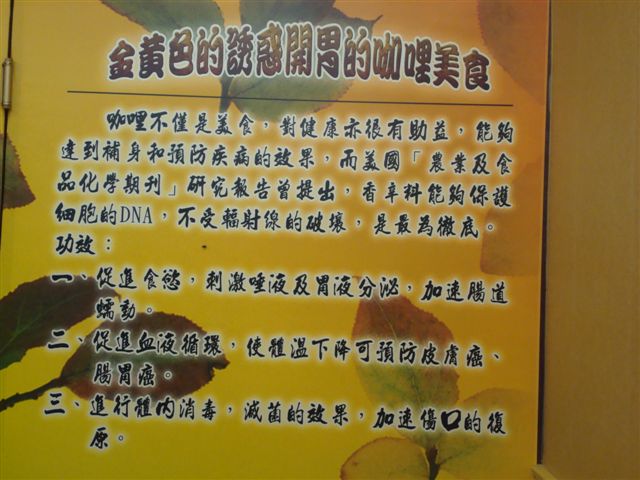 金黃色的誘惑開胃的咖哩美食
咖哩不僅是美食，對健康亦很有助益，能夠
達到補身和預防疾病的效果，而美國「農業及食
品化學期刊」研究報告曾提出，香辛料能夠保護
細胞的DNA，不受輻射線的破壞，是最為徹底。
功效：
一、促進食慾，刺激唾液及胃液分泌，加速腸道
蠕動。
二、促進血液循環，使體溫下降可預防皮膚癌、
腸胃癌。
三、進行體內消毒，滅菌的效果，加速傷口的復
原。